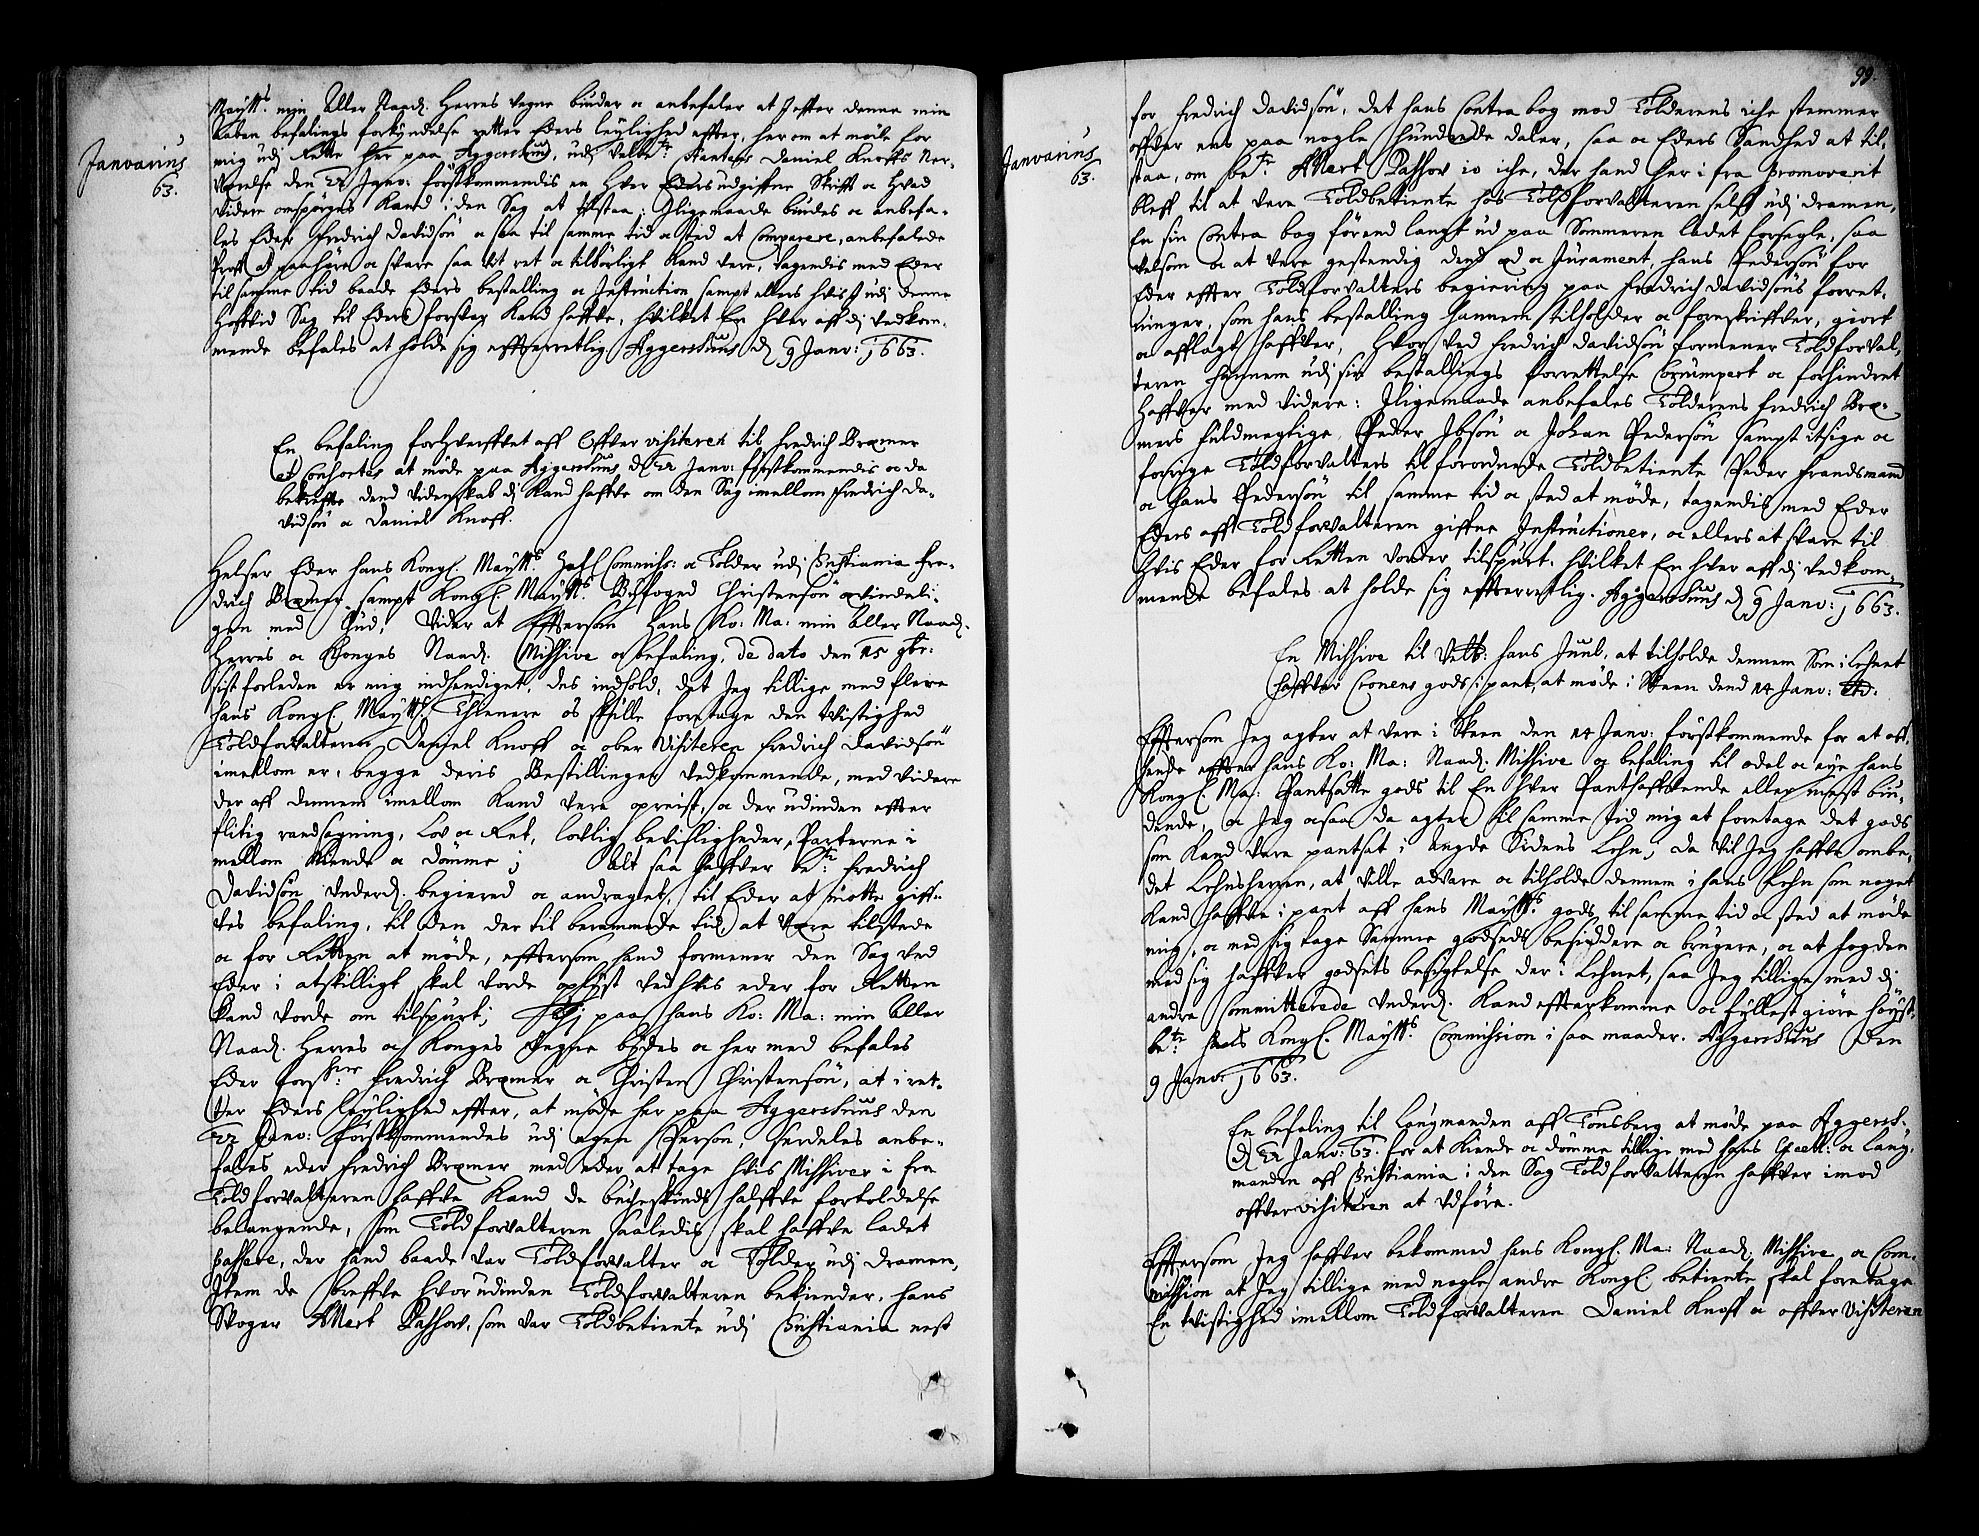 Janvarius
63.
Maÿtts. min Aller Naad. Herres vegne biuder oc anbefaler at I effter denne min
aaben befalings forkÿndelse retter Eders leÿlighed effter, her om at møde for
mig udj Rette her paa Aggershuus, udj Daniel Knoffs Ner-
verelse den 22 Janv: førstkommendis en hver Eders udgiffne Skrifft oc hvad
videre omspørges kand i den Sag at tilstaa; Jligemaade biudes oc anbefa-
les Eder Fredrich Davidsøn oc saa til samme tid oc sted at Comparere, anbefalede
at paahøre oc svare saa vit ret oc tilbørligt kand vere, tagendis med Eder
til samme tid baade Eders bestalling oc Instruction sampt ellers hvis I udj denne
Sag til Eders forsvar kand haffve, hvilket En hver aff dj vedkom-
mende befales at holde sig effterretlig Aggershuus d 9 Janv: 1663.
En befaling forhverffvet aff Offver visiteren til Fredrich Bremer
et Consortes at møde paa Aggershuus d 22 Janv: førstkommendis oc da
bekreffte dend videnskab dj kand haffve om den Sag imellom Fredrich Da-
vidsøn oc Daniel Knoff.
Helser Eder hans Kongl. Maÿtts. Commiss: oc Tolder udj Christiania Fre-
drich Bremer sampt Kongl. Maÿtts. Bÿfoged Christensøn venlindeli-
gen med Gud; Vider at Effterson Hans Ko: Ma: min Aller Naad.
Herres oc Konges Naad. Missive oc befaling, de dato den 15 9br:
sist forleden er mig indhendiget, des indhold, det Jeg tillige med flere
hans Kongl. Maÿtts. Thienere os skulle foretage den tvistighed
Toldforvalteren Daniel Knoff oc ober Visiteren Fredrich Davidsøn
imellom er, begge deris Bestillinger vedkommende, med videre
der aff dennem imellom kand vere opreist, oc der udinden effter
flitig randsagning, Lov oc Ret, lovlig bevisligheder, Parterne i
mellom kiende oc dømme; Alt saa haffver bete: Fredrich
Davidsøn Underd. begiered oc andraget, til Eder at motte giff-
ves befaling, til den der til berammede tid, at vere tilstede
oc for Retten at møde, efftersom hand formener den Sag ved
Eder i atskilligt skal vorde oplÿst ved hvis eder for Retten
kand vorde om tilspurt; Thj paa hans Ko: Ma: min Aller
Naad. Herres oc Konges Vegne bÿdes oc her med befales
Eder Fredrich Bremer oc Christen Christensøn, at i ret-
ter Eders leÿlighed effter, at møde her paa Aggershuus den
22 Janv: førstkommendes udj egen Person, serdeles anbe-
fales eder Fredrich Bremer med eder at tage hvis Missiver i fra
Toldforvalteren haffve kand de bucheskinds halffve fortoldelse
belangende, som Toldforvalteren saaledis skal haffve ladet
passere, der hand baade var Toldforvalter oc Tolder udj Dramen,
Item de breffve hvorudinden Toldforvalteren bekiender, hans
Svoger Albert Rathov, som var Toldbetiente udj Christiania nest
99.
Janvarius
63.
for Fredrich Davidsøn, det hans Contra bog med Tolderens iche stemmer
offver ens paa nogle hundrede daler, saa oc Eders Sandhed at til-
staa, om bete. Albert Rathov io iche, der hand her i fra promoverit
bleff til at vere Toldbetiente hos Toldforvalteren selff udj Dramen,
En sin Contra bog førend langt ud paa Sommeren ladet forsegle, saa
velsom oc at vere gestendig dend ed oc Jurament, hans Pedersøn for
Eder effter Toldforvalters begiering paa Fredrich Davidsøns forret-
ninger, som hans bestalling hannem tilholder oc foreskriffver, giort
oc afflagt haffver, hvor ved Fredrich Davidsøn formener Toldforval-
teren hannem udj sin bestallings forrettelse Corrumpert oc forhindret
haffver med videre: Jligemaade anbefales Tolderens Fredrich Bre-
mers fuldmegtige, Peder Ibsøn oc Johan Pedersøn sampt itsige oc
forrige Toldforvalters til forordnede Toldbetiente Peder Frandsmand
oc Hans Pedersøn til samme tid oc sted at møde, tagendis med Eder
Eders aff Toldforvalteren giffne Instructioner, oc ellers at svare til
hvis Eder for Retten vorder tilspurt. hvilket En hver aff dj vedkom-
mende befales at holde sig effterretlig. Aggershuus d 9 Janv: 1663.
En Missive til Velb: Hans Juul, at tilholde dennem som i Lehnet
haffver Cronens gods i pant, at møde i Skeen dend 14 Janv:
Efftersom Jeg agter at vere i Skeen den 14 Janv: førstkommende for at aff-
hende effter hans Ko: Ma: Naad. Missive oc befaling til odel oc eÿe hans
Kongl. Ma: Pantsatte gods til En hver Panthaffvende eller mest biu-
dende, oc Jeg ocsaa da agter til samme tid mig at foretage det gods
som kand vere pantsat i Angde Sidens Lehn, da vil Jeg haffve ombe-
det Lehnsherren, at ville advare oc tilholde dennem i hans Lehn som noget
kand haffve i pant aff hans Maÿtts. gods til samme tid oc sted at møde
mig, oc med sig tage Samme godseds besiddere oc brugere, oc at fogden
med sig haffver godsets besigtelse der i Lehnet, saa Jeg tillige med dj
andre Committerede Underd. kand effterkomme oc fÿllest giøre høÿst-
bete. hans Kongl. Maÿtts. Commission i saa maader. Aggershuus Den
9 Janv: 1663.
En befaling til Laugmanden aff Tønsberg at møde paa Aggersh.
d 22 Janv: 63. for at kiende oc dømme tillige med hans oc Laug-
manden aff Christiania i den Sag Toldforvalteren haffver imod
offvervisiteren at udføre.
Efftersom Jeg haffver bekommed hans Kongl. Ma: Naad. Missive oc Com-
mission at Jeg tillige med nogle andre Kongl. betiente skal foretage
En tvistighed imellom Toldforvalteren Daniel Knoff oc offver Visiteren